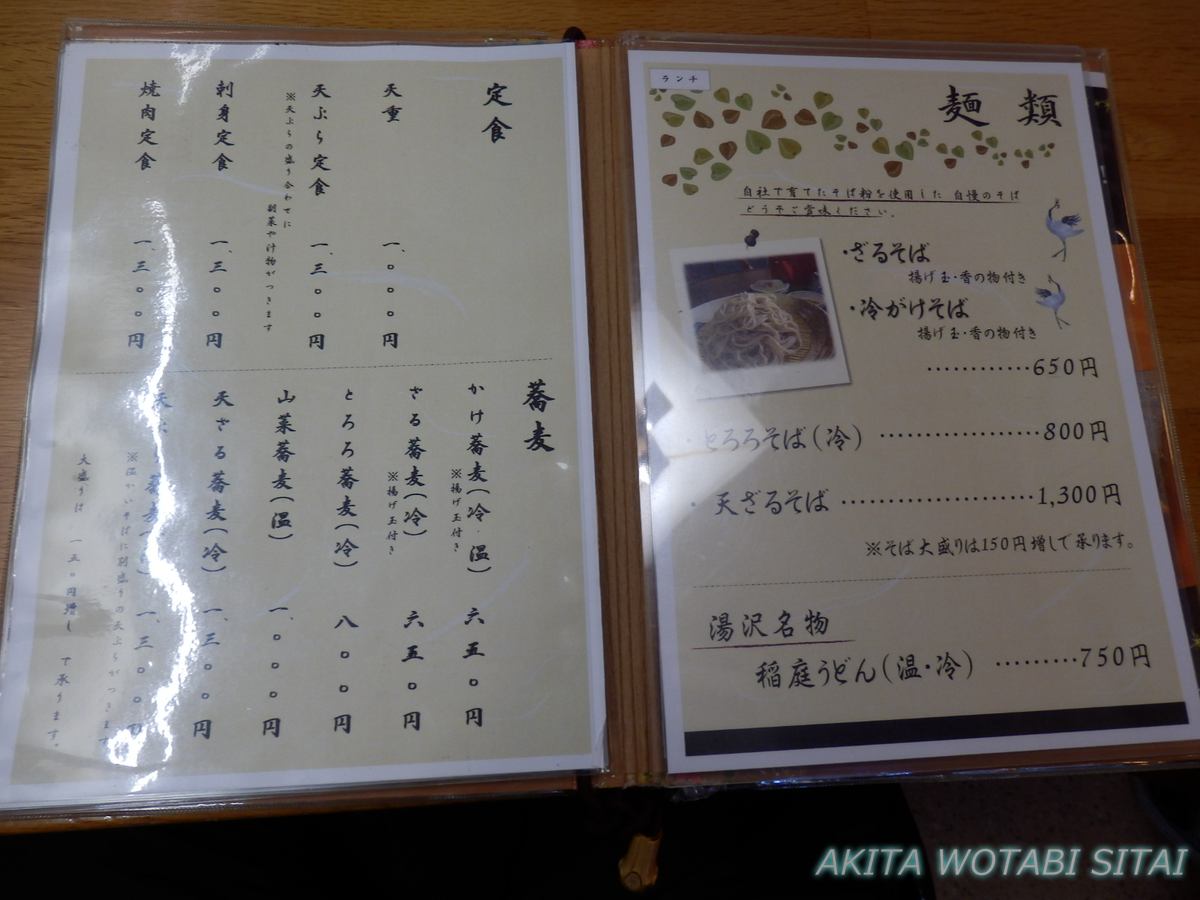 定食
天重 一、〇〇〇円
天ぷら定食 一、三〇〇円
※天ぷらの盛り合わせに
副菜や汁物がつきます
刺身定食 一、三〇〇円
焼肉定食 一、三〇〇円
蕎麦
かけ蕎麦(冷・温) 六五〇円
※揚げ玉付き
ざる蕎麦(冷) 六五〇円
※揚げ玉付き
とろろ蕎麦(冷) 八〇〇円
山菜蕎麦(温) 一、〇〇〇円
天ざる蕎麦(冷) 一、三〇〇円
蕎麦 一、三〇〇円
※温かいそばに別盛りの天ぷらがつきます
大盛りは 一五〇円増し で承ります。
ランチ
麺類
自社で育てたそば粉を使用した 自慢のそば
どうぞご賞味ください。
・ざるそば
揚げ玉・香の物付き
・冷がけそば
揚げ玉・香の物付き
…………650円
・とろろそば(冷) ………………800円
・天ざるそば …………………1,300円
※そば大盛りは150円増しで承ります。
湯沢名物
稲庭うどん(温・冷) ………750円
AKITA WOTABI SITAI